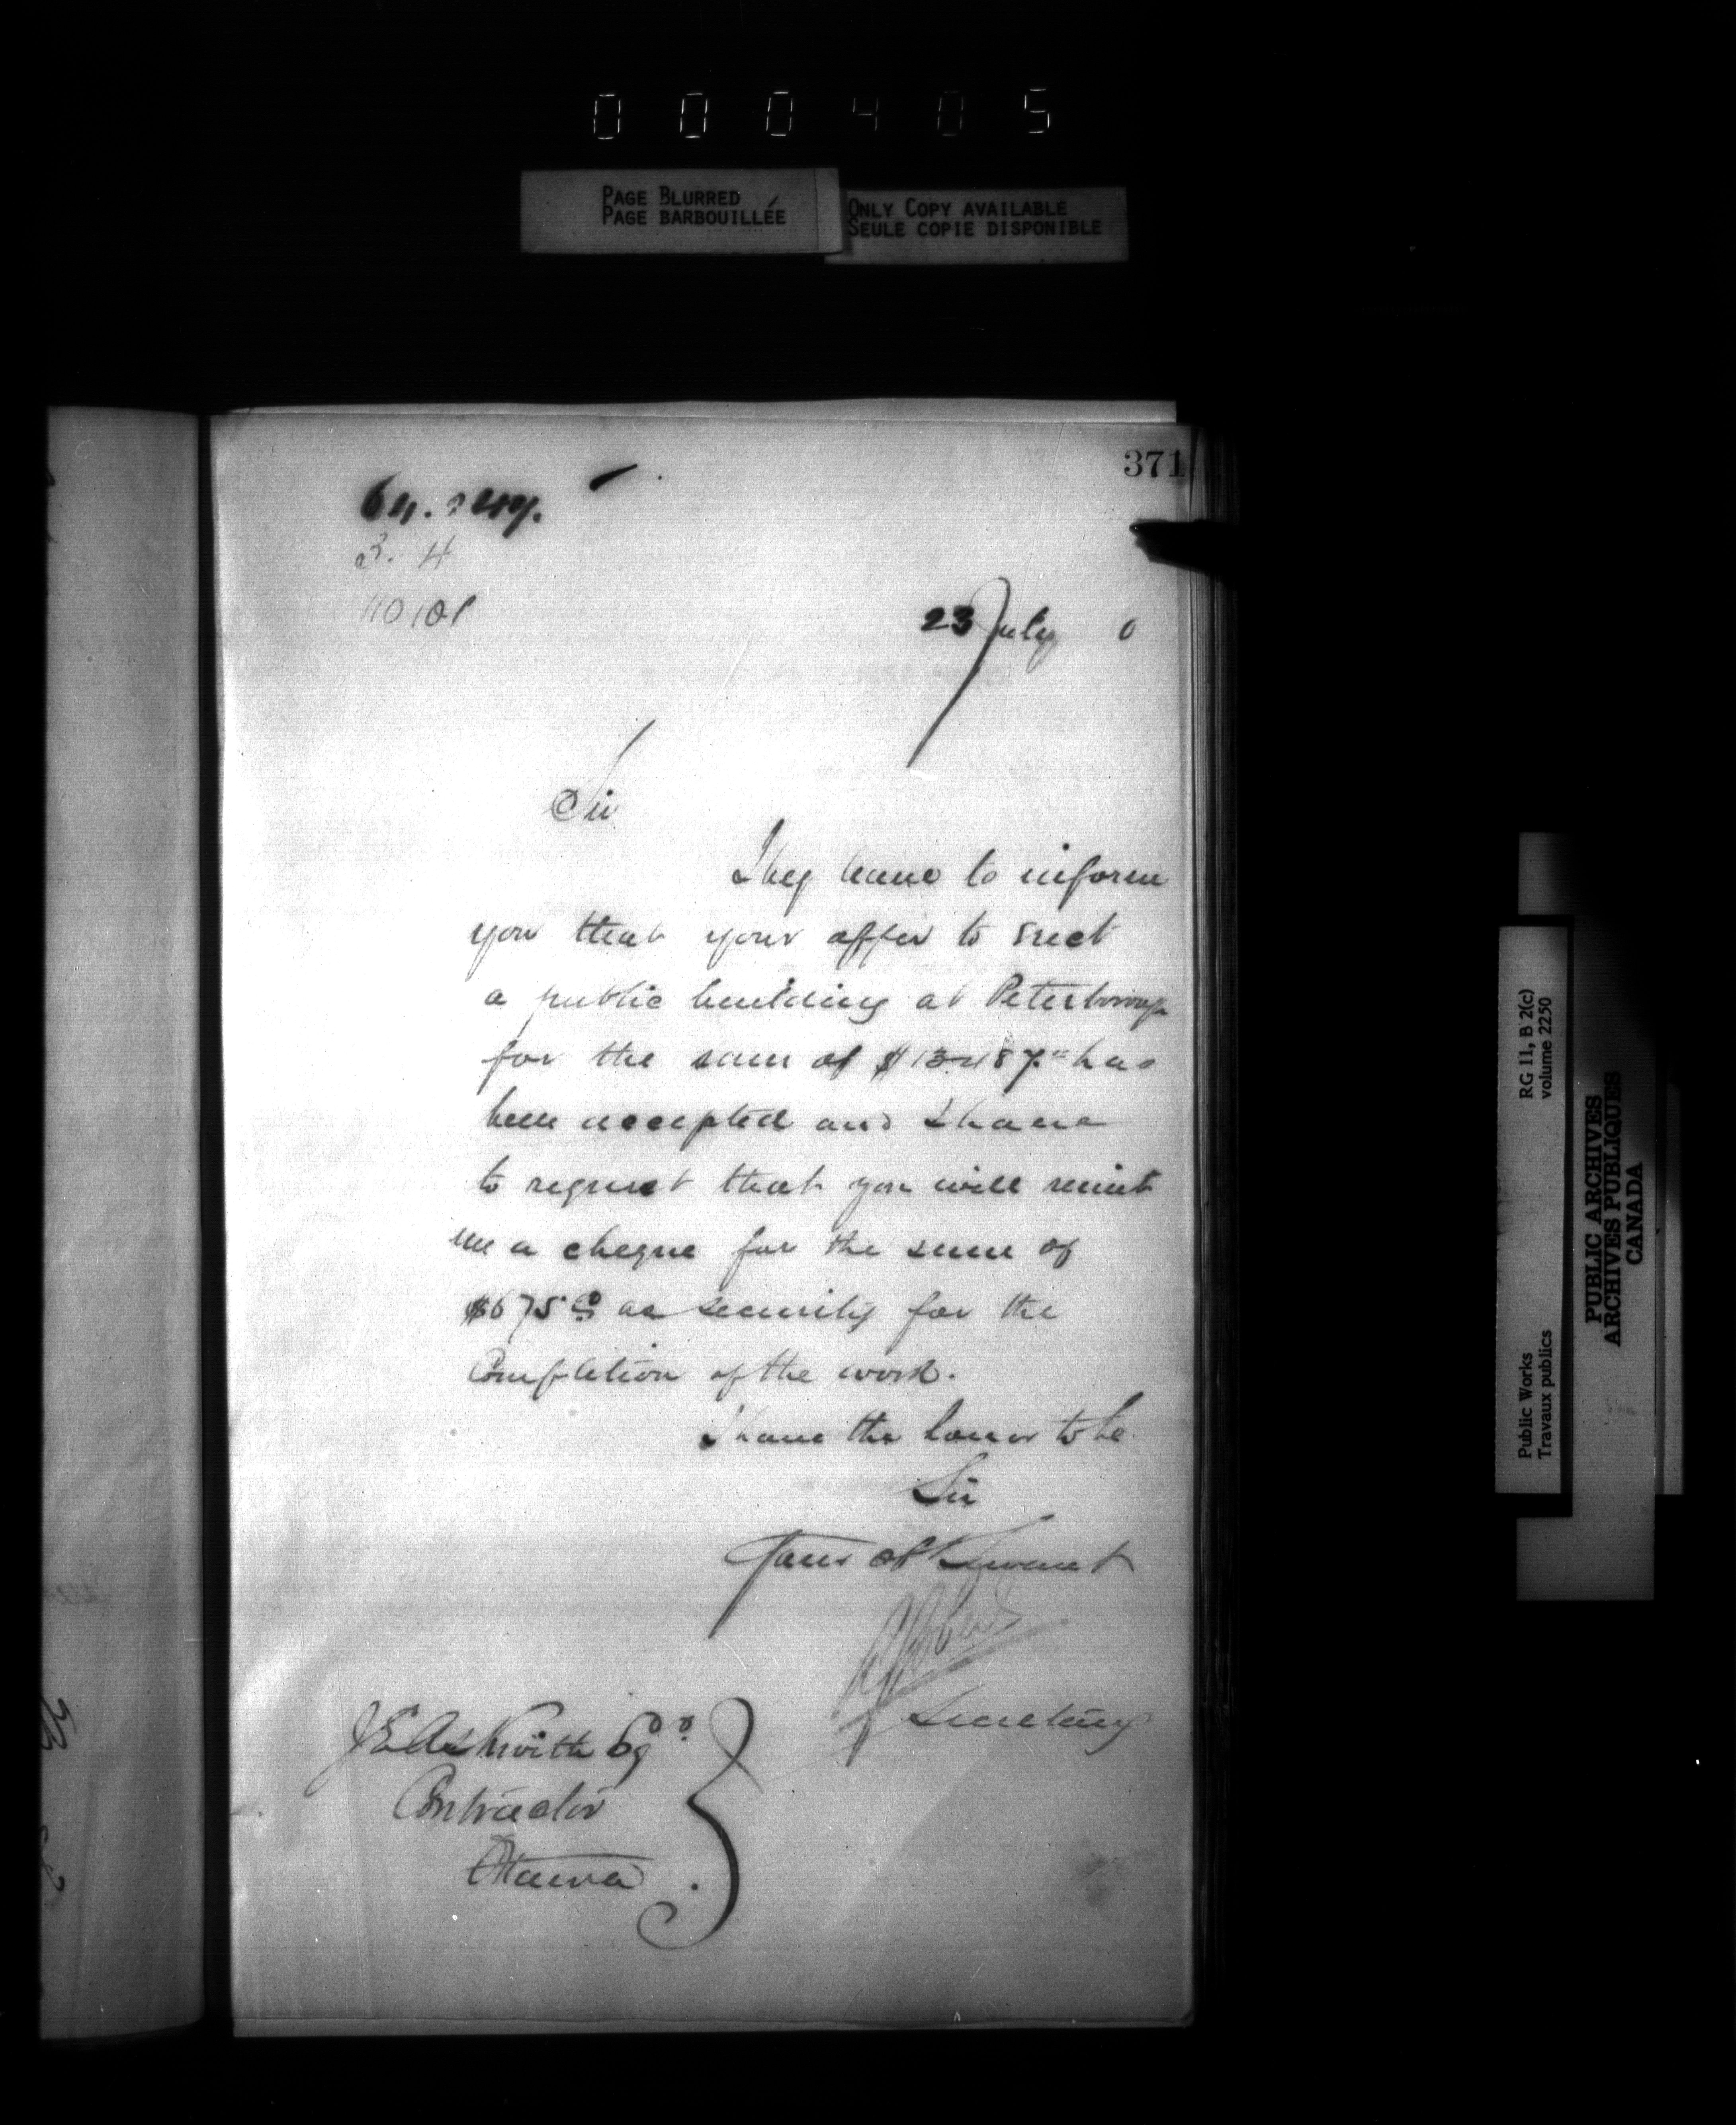 000405
PAGE BLURRED
PAGE BARBOUILLÉE
ONLY COPY AVAILABLE
SEULE COPIE DISPONIBLE
371
23 July 0
Sir
I beg leave to inform
you that your offer to erect
a public building at Peterboroug
for the sum of $13487.00 has
been accepted and I have
to request that you will remit
me a cheque for the sum of
$675.00 as security for the
Completion of the work.
I have the honor to be
Sir
Your Obt Servant
Secretary
J E Askwith Esq
Contractor
Ottawa
RG 11, B 2(c)
volume 2250
Public Works
Travaux publics
PUBLIC ARCHIVES
ARCHIVES PUBLIQUES
CANADA